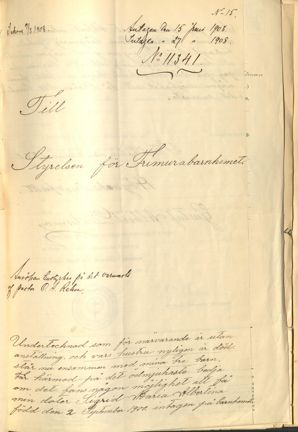 No 15.
Antagen den 15 Juni 1908.
Intagen " 27 " 1908.
No 11341
Till
Styrelsen för Frimurarebarnhemet.
Ansökan på det varmaste
af pastor
Undertecknad som för närvarande är utan
anställning, och vars hustru nyligen är död
står nu ensammen med mina tre barn,
får härmed på det ödmjukaste bedja
om det fans någon möjlighet att få
min doter Sigrid Maria Albertina
född den 2 September 1900 intagen på barnhemmet